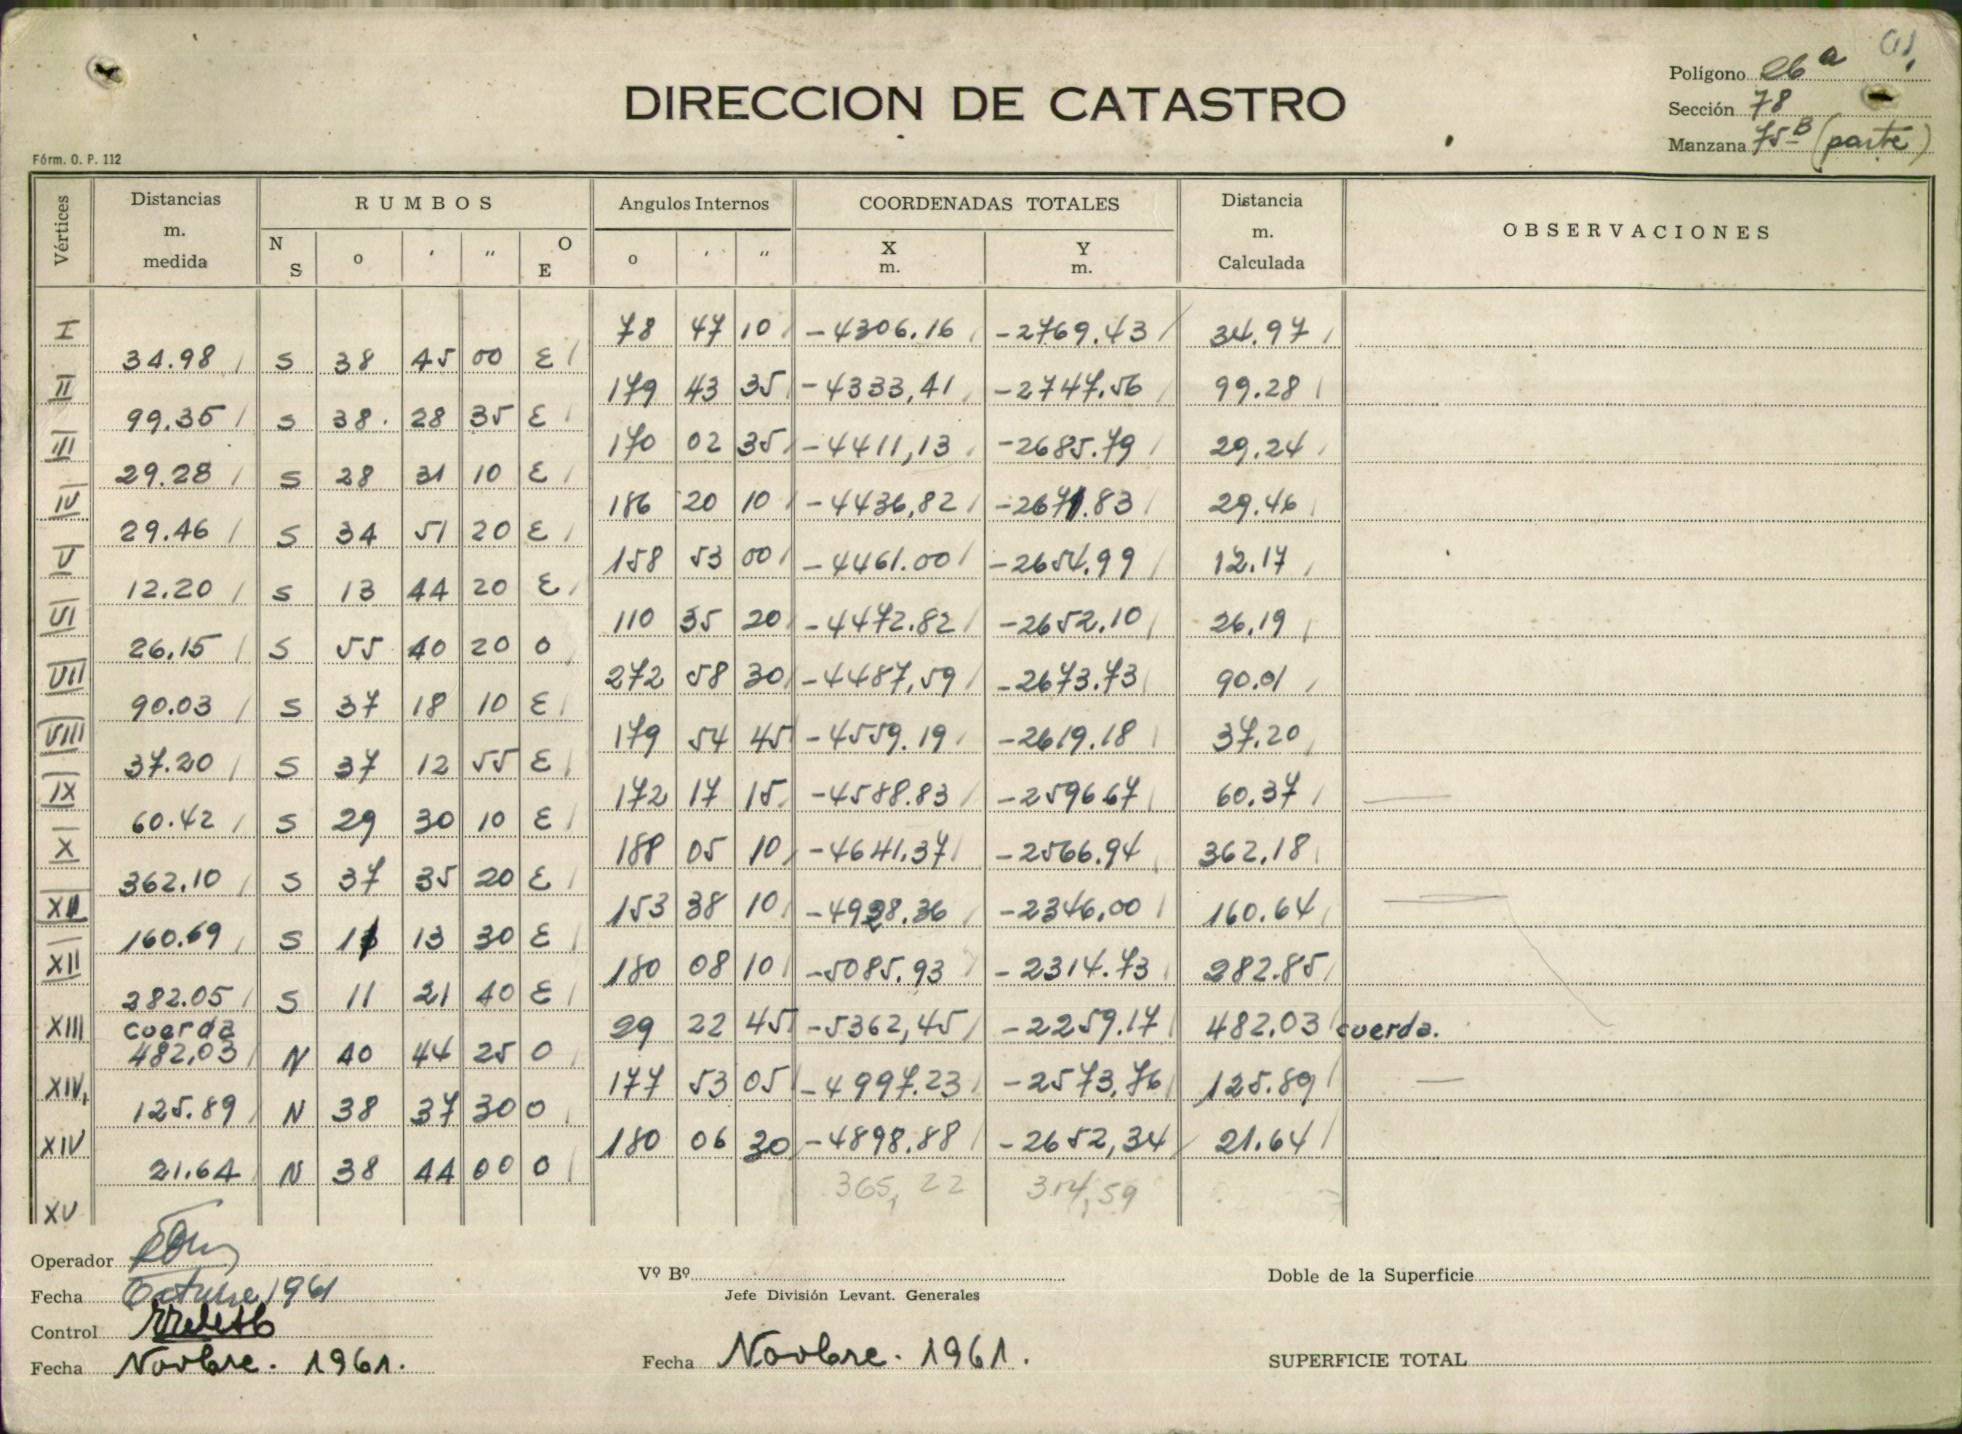 Polígono 26 a
DIRECCION DE CATASTRO
Sección 78
Manzana 75-B (parte)
Fórm. O. P. 112
Vértices Distancias m. medida RUMBOS N S o ' " O E Angulos Internos o ' " COORDENADAS TOTALES X m. Y m. Distancia m. Calculada OBSERVACIONES
I 78 47 10 -4306.16 -2769.43 34.97
34.98 S 38 45 00 E
II 179 43 35 -4333,41 -2747.56 99.28
99.35 S 38. 28 35 E
III 170 02 35 -4411,13 -2685.79 29.24
29.28 S 28 31 10 E
IV 186 20 10 -4436,82 -2671.83 29.46
29.46 S 34 51 20 E
V 158 53 00 -4461.00 -2654.99 12.17
12.20 S 13 44 20 E
VI 110 35 20 -4472.82 -2652.10 26.19
26.15 S 55 40 20 O
VII 272 58 30 -4487,59 -2673.73 90.01
90.03 S 37 18 10 E
VIII 179 54 45 -4559.19 -2619.18 37.20
37.20 S 37 12 55 E
IX 172 17 15 -4588.83 -259667 60.37
60.42 S 29 30 10 E
X 188 05 10 -4641.37 -2566.94 362.18
362.10 S 37 35 20 E
XI 153 38 10 -4928.36 -2346.00 160.64
160.69 S 11 13 30 E
XII 180 08 10 -5085.93 -2314.73 282.85
282.05 S 11 21 40 E
XIII cuerda 29 22 45 -5362,45 -2259.17 482.03 cuerda.
482,03 N 40 44 25 O
XIV, 177 53 05 -4997.23 -2573,76 125.89
125.89 N 38 37 30 O
XIV 180 06 30 -4898.88 -2652,34 21.64
21.64 N 38 44 00 O
365,22 314,59
XV
Operador
Vº Bº Doble de la Superficie
Fecha Octubre 1961
Jefe División Levant. Generales
Control
Fecha Novbre. 1961. Fecha Novbre. 1961. SUPERFICIE TOTAL